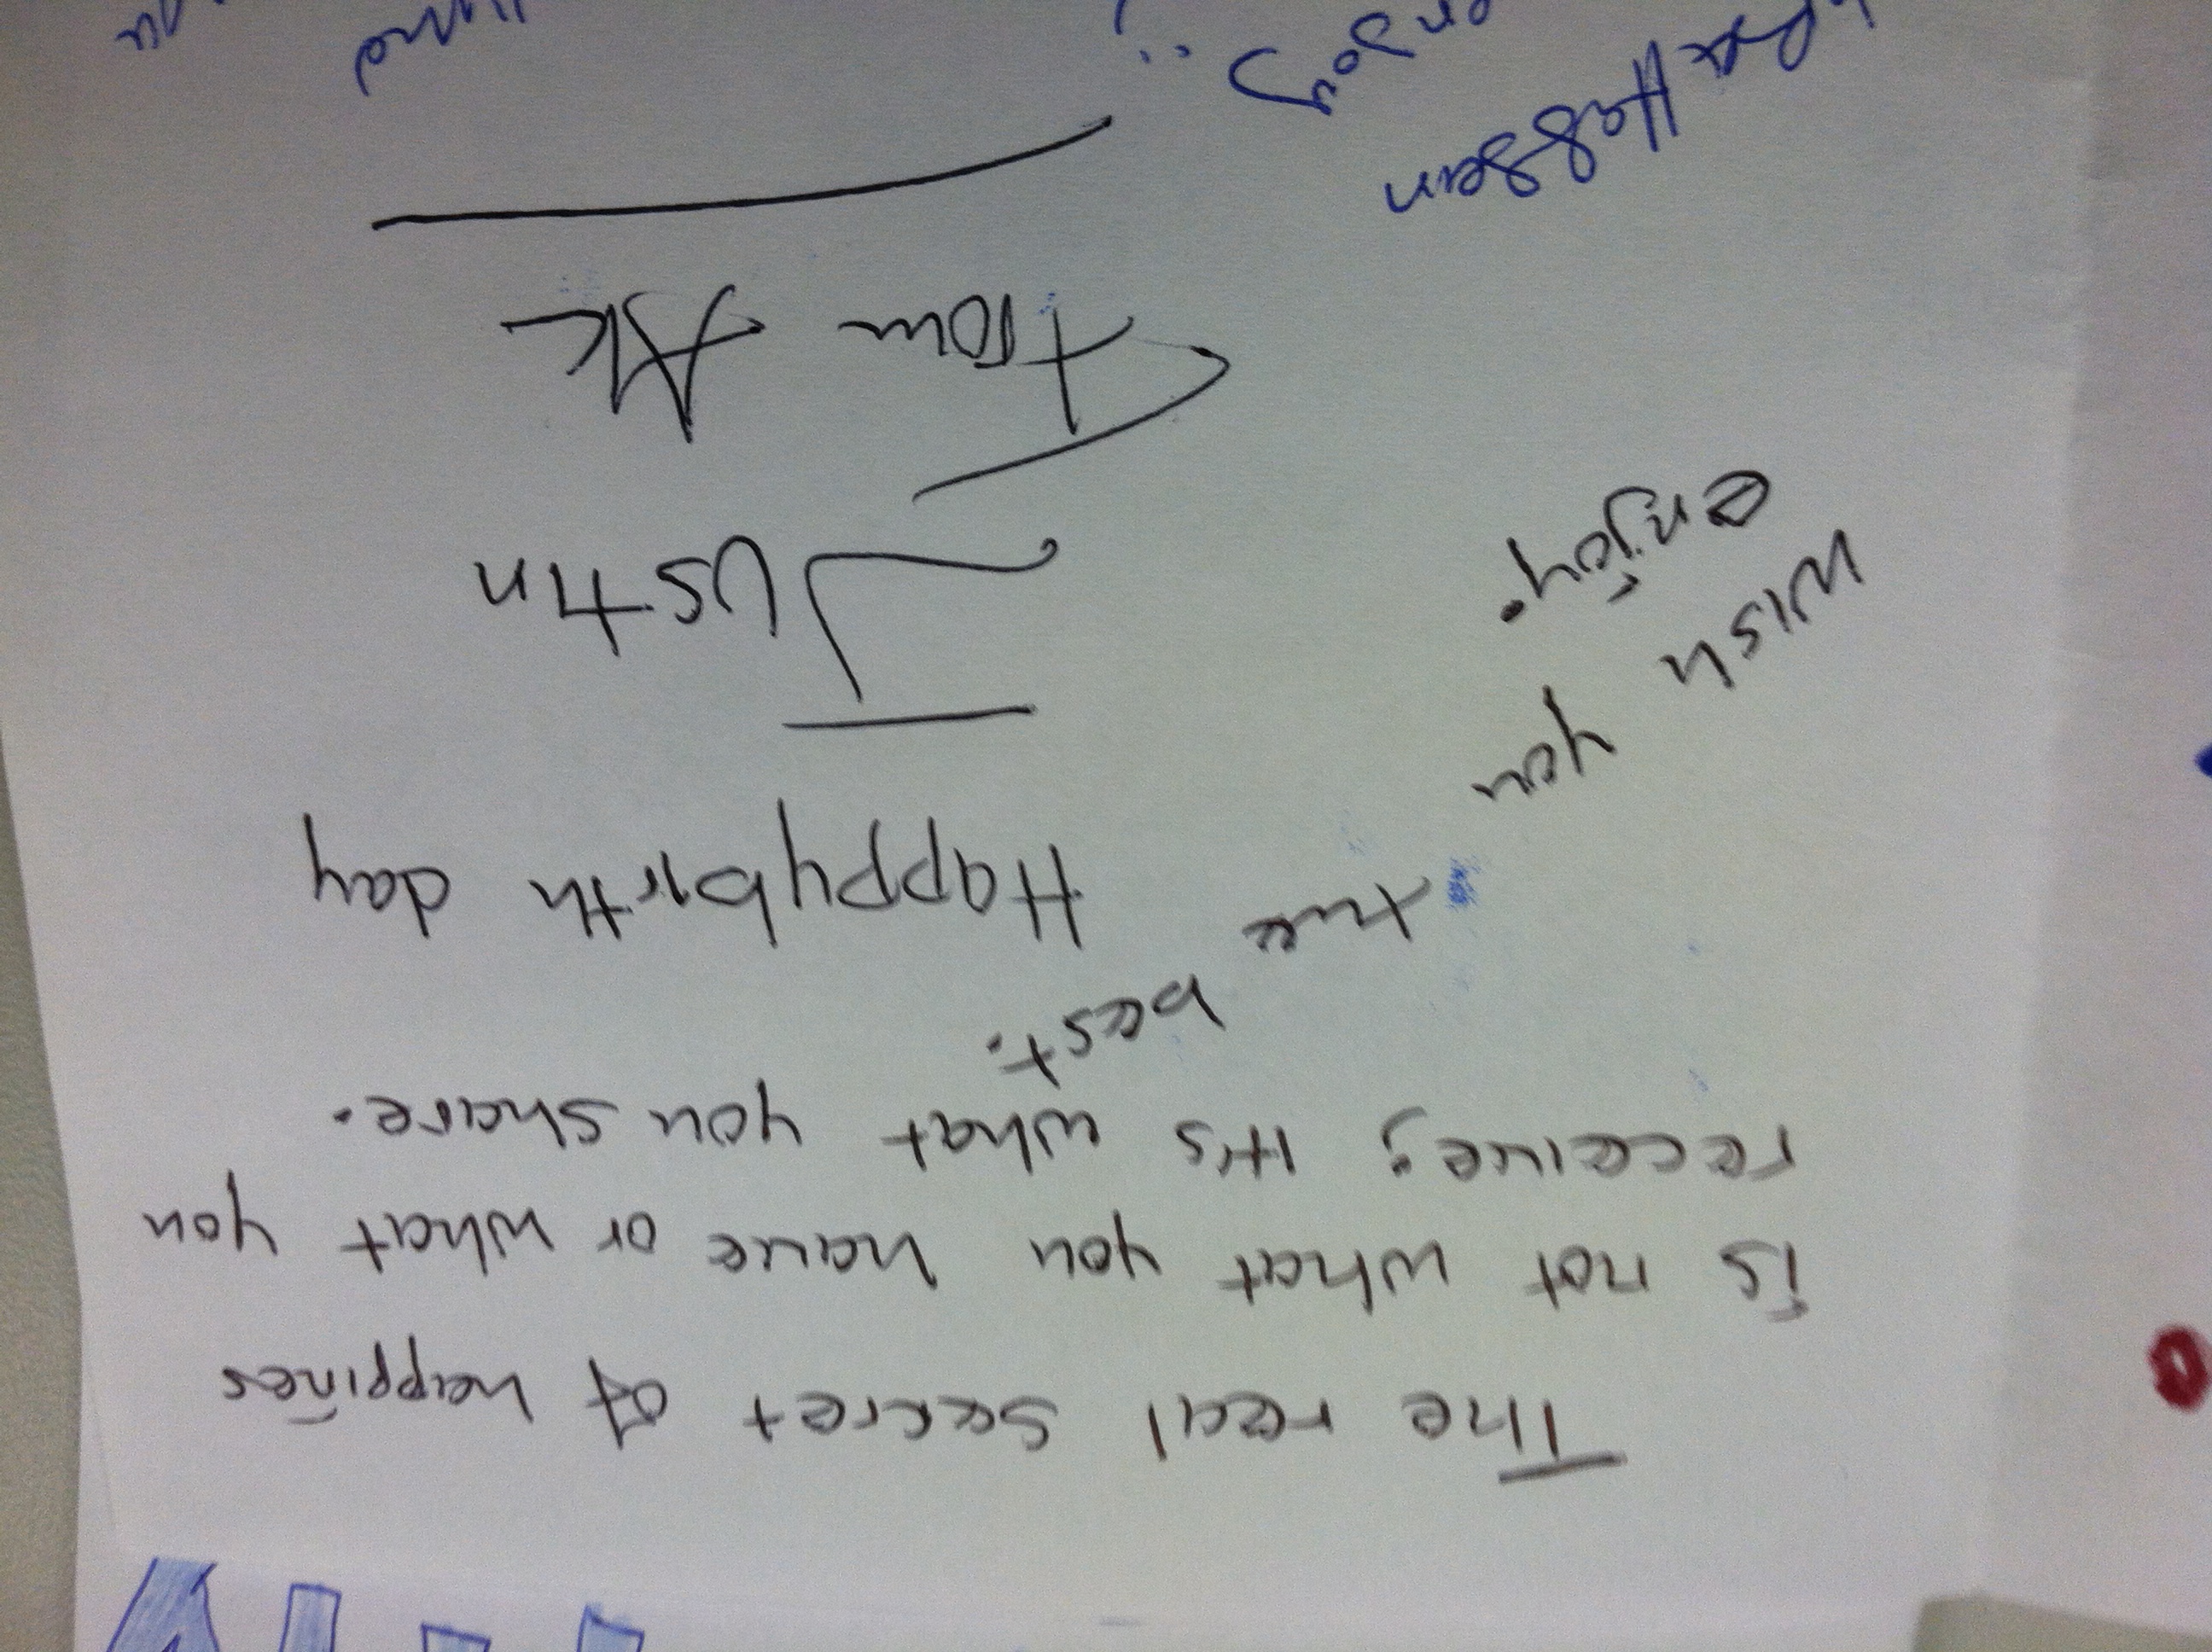 The real secret of happines
is not what you have or what you
receive; it's what you share.
Wish you the best.
enjoy.
Happy birth day
Justin
From AK
Hassan
enjoy